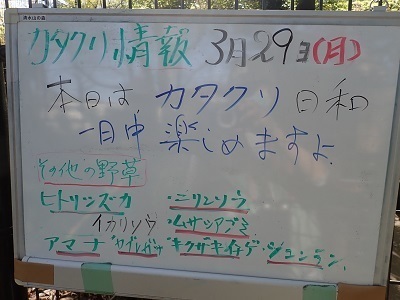 清水山の森
カタクリ情報 3月29日(月)
本日は、カタクリ日和
一日中 楽しめますよ
その他の野草
ヒトリシズカ ・ニリンソウ
イカリソウ ・ムサシアブミ
アマナ ヤブレガサ キクザキイチゲ・ジュンラン、